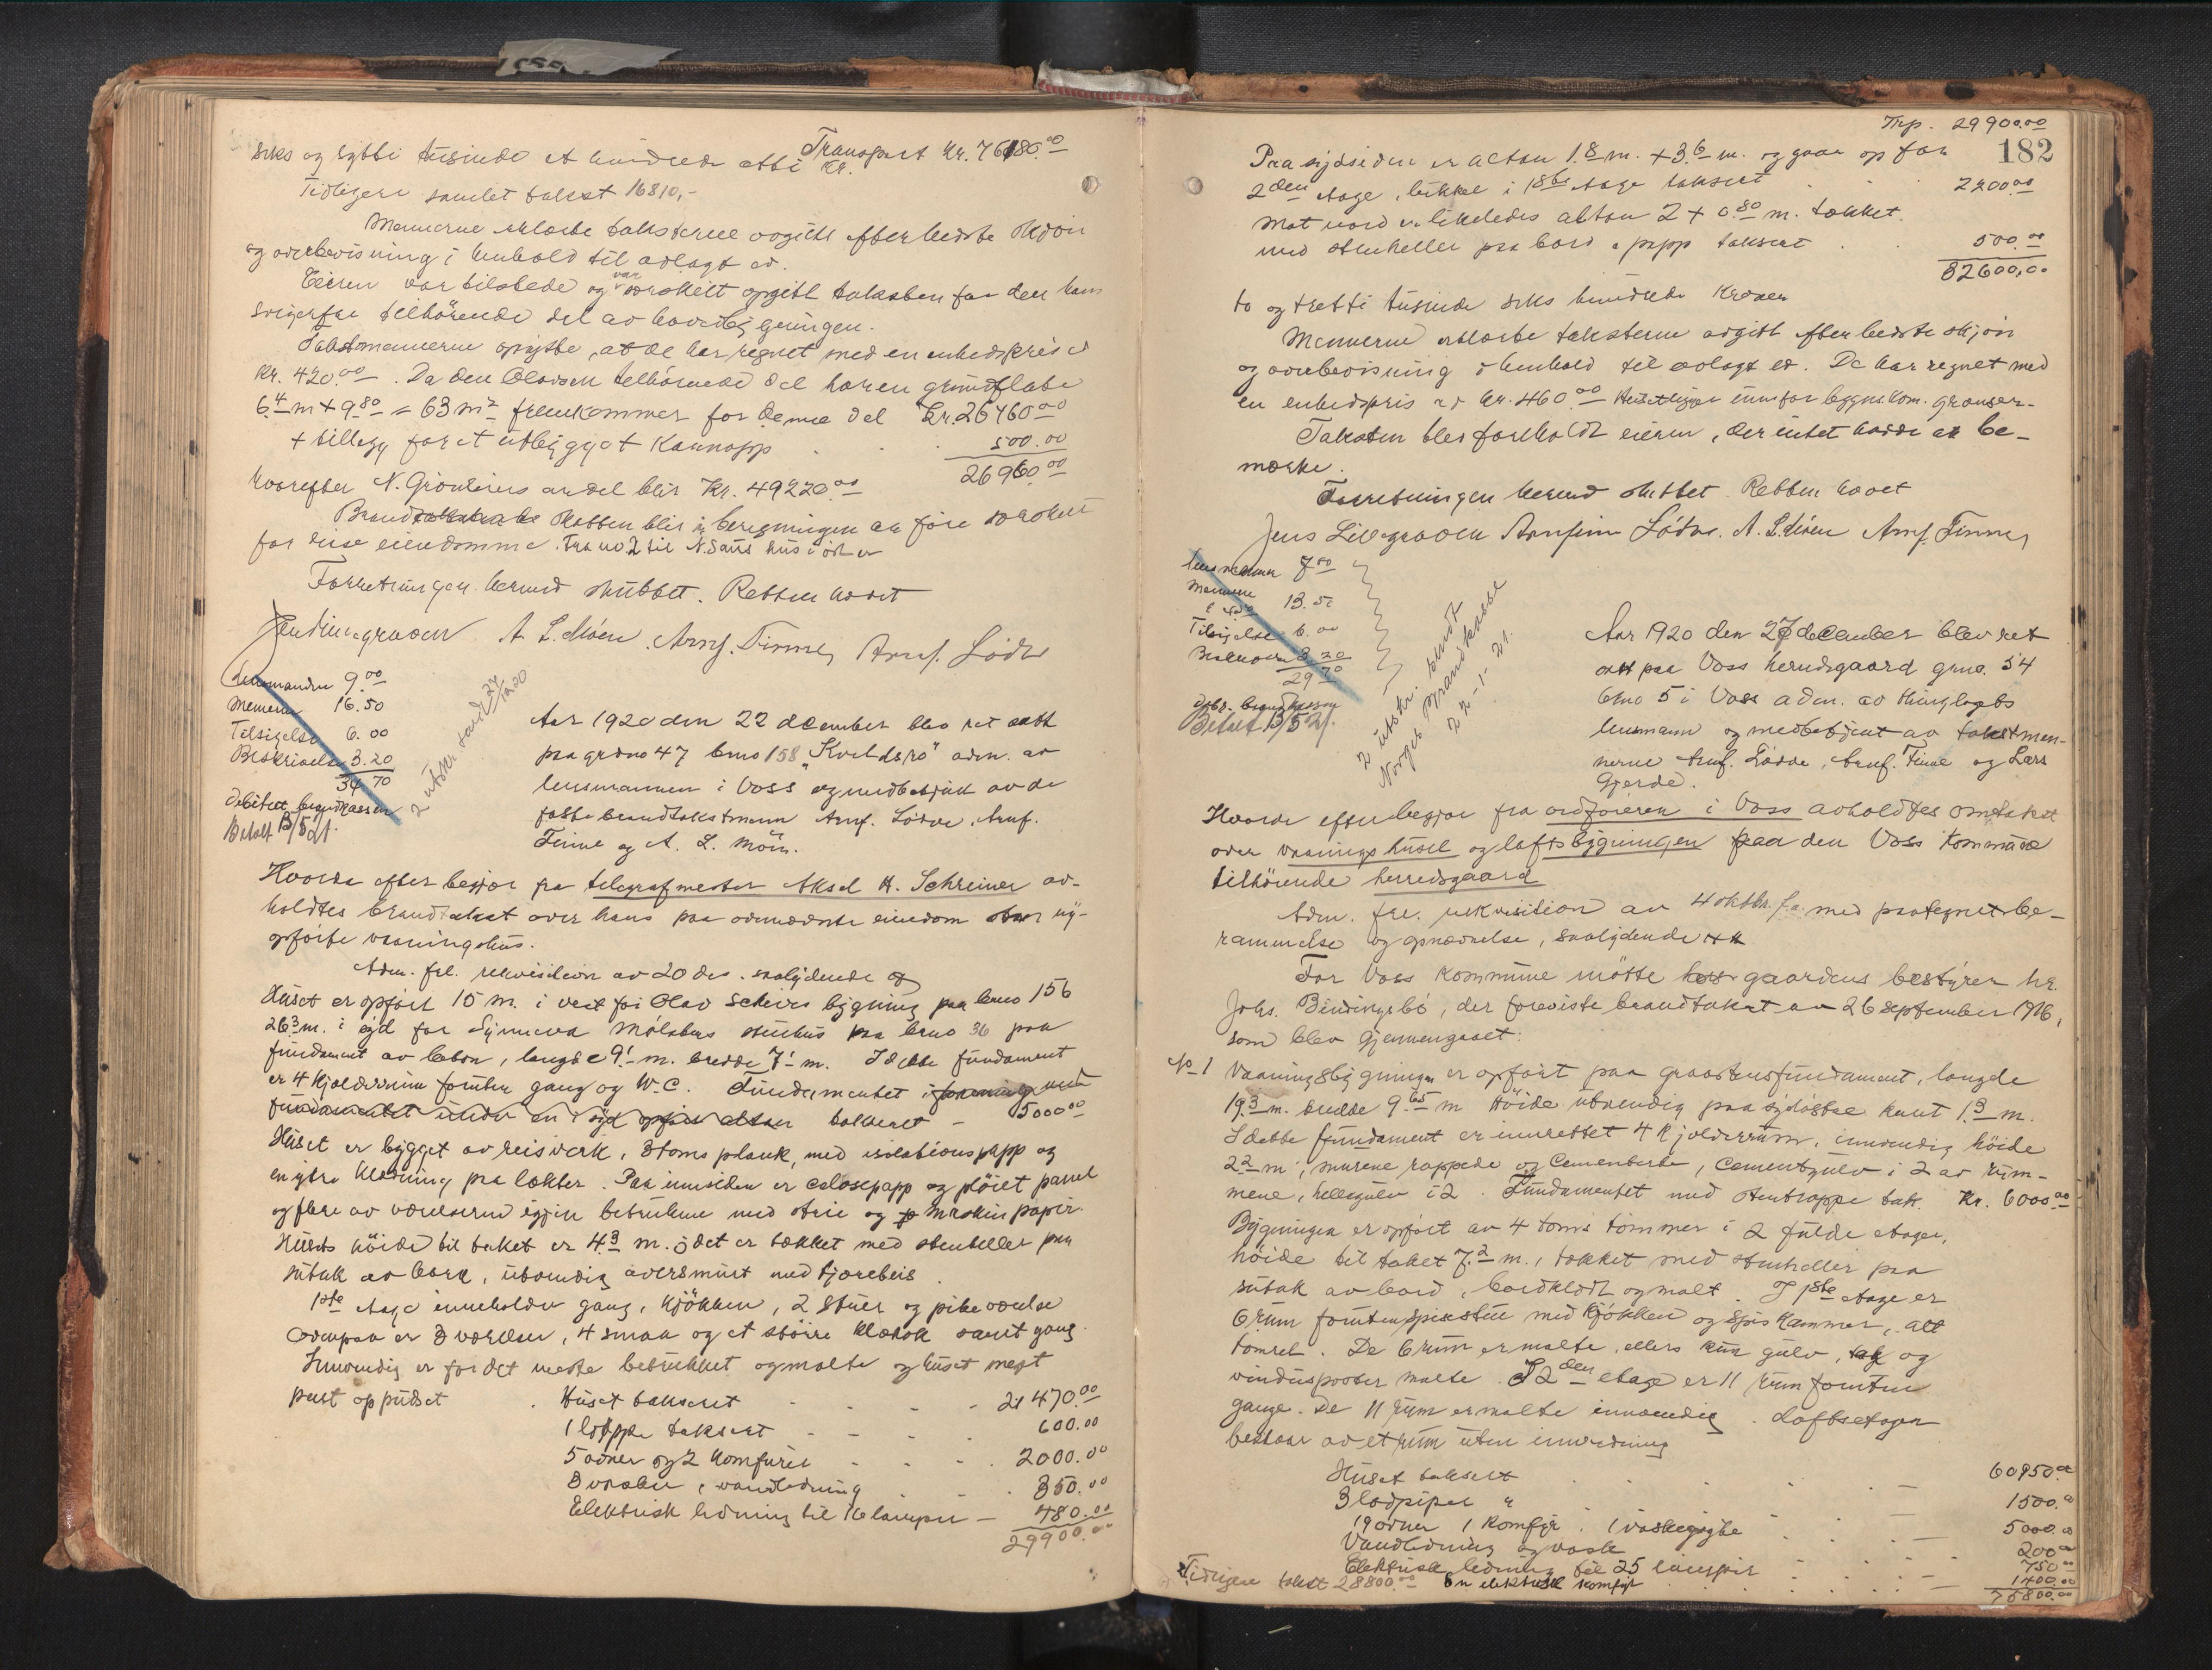 Transport Kr. 76180.00
seks og sytti tusinde et hundrede otti Kr.
Tidligere samlet takst 16810,-
Mennerne erklærte taksterne avgitt efter bedste skjøn
og overbevisning i henhold til avlagt ed.
Eieren var tilstede og var særskilt opgitt taksten for den hans
svigerfar tilhörende del av hovedbygningen.
Takstmennerne opgitte, at de har regnet med en enhedspris av
Kr. 420.00. Da den Olavsen tilhörende del har en grundflate
6.4 m + 9.80 = 63 m2 fremkommer for denne del Kr. 26460.00
+ tillegg for et utbygget Kannapp . . 500.00
26960.00
hvorefter N. Grönliens andel blir Kr. 49220.00
Brand skatten blir i beregningen at före særskilt
for disse eiendomme. Fra no 2 til N. Sans hus i öst er
Forretningen hermed sluttet. Retten hævet
A. L. Moen. Arnf. Finne, Arnf. Lödve
Lensmanden 9.00
Mennerne 16.50
Tilsigelse 6.00
Beskrivelse 3.20
34 70
Debitert brandkassen
Betalt 13/5 21.
2 utskr. sendt 27/12 20
Aar 1920 den 22 december blev ret satt
paa grdno 47 bno 158 "Kveldsro" adm. av
lensmannen i Voss og medbetjent av de
faste brandtakstmenn Arnf. Lödve, Arnf.
Finne og A. L. Möen.
Hvorda efter begjær fra telegrafmester Aksel H. Schreiner av-
holdtes brandtakst over hans paa ovennævnte eiendom staar ny-
opförte vaaningshus.
Adm. frl. rekvisition av 20 ds. saalydende
Huset er opfört 15 m. i vest for Olav Scheies bygning paa bno 156
26.3 m. i syd for Synneva Mölsters stenhus paa bno 36 paa
fundament av beton, lengde 9.1 m. bredde 7.1 m. I dette fundament
er 4 kjelderrum foruten gang og W.C. Fundamentet i forening med
fundamentet under en i syd opfört altan taksert - 5000.00
Huset er bygget av reisverk, 3 toms plank, med isolationspapp og
en ytre klædning paa lekter. Paa innsiden er celosepapp og plöiet panel
og flere av værelserne igjen betrukne med strie og maskinpapir.
Husets höide til taket er 4.3 m. ; det er tækket med stenheller paa
sutak av bord, utvendig oversmurt med tjærebeis.
1ste etage inneholder gang, kjökken, 2 stuer og pikeværelse
Ovenpaa er 3 værelser, 4 smaa og et större klædeskap samt gang.
Innvendig er for det meste betrukket og malte og huset meget
pent oppudset . Huset taksert - - - - 21470.00
1 löppe taksert - - - . 600.00
5 ovner og 2 Komfurer . . . 2000.00
3 vasker, vandledning . . . 350.00
Elektrisk ledning til 16 lamper - 480.00
29900.00
Trp. 29900.00
182
Paa sydsiden er altan 1.8 m. + 3.6 m. og gaar op for
2den etage, lukket i 1ste etage taksert . . 2200.00
Mot nord er likeledes altan 2 + 0.80 m. tækket
med stenheller paa bord & papp taksert . . 500.00
32600.00
to og tretti tusinde seks hundrede Kroner
Mennerne erklærte taksterne avgitt efter bedste skjön
og overbevisning i henhold til avlagt ed. De har regnet med
en enhedspris av kr. 460.00 Huset ligger innfor bygns. kom. grænser.
Taksten blev foreholdt eieren, der intet hadde at be-
mærke.
Forretningen hermed sluttet. Retten hævet
Jens Lillegraven Arnfinn Lödve. A. L. Möen Arnf. Finne
Lensmannen 7.00
Mennerne
13.50
Tilsigelse 6.00
Beskrivelse 3.20
29 70
Debt. brandkassen
Betalt 13/5 21.
2 utskr. sendt
Norges Brandkasse
22-1-21.
Aar 1920 den 27 december blev ret
satt paa Voss herredsgaard gno. 54
bno 5 i Voss adm. av thinglagets
lensmann og medbetjent av takstmen-
nerne Arnf. Lödve, Arnf. Finne og Lars
Gjerde.
Hvorda efter begjær fra ordföreren i Voss avholdtes omtakst
over vaaningshuset og loftsbygningen paa den Voss Kommune
tilhörende herredsgaard
Adm. frl. rekvisition av 4 oktbr. f.a. med paategnet be-
rammelse og opnævnelse, saalydende
For Voss Kommune mötte gaardens bestyrer hr.
Johs. Bidingsbö, der foreviste brandtakst av 26 september 1916,
som blev gjennemgaaet:
No 1 Vaaningsbygningen er opfört paa graastensfundament, længde
19.3 m. bredde 9.65 m Höide utvendig paa sydöstre kant 1.9 m.
I dette fundament er innrettet 4 Kjelderrum, innvendig höide
2.2 m ; murene rappede og Cementerte, Cementgulv i 2 av rum-
mene, hellegulv i 2. Fundamentet med stentrappe tak. Kr. 6000.00
Bygningen er opfört av 4 toms tömmer i 2 fulde etager,
höide til taket 7.2 m., tækket med stenheller paa
sutak av bord, bordklædt og malt. I 1ste etage er
6 rum foruten spisestue med kjökken og spiskammer, alt
tömret. De 6 rum er malte, ellers kun gulv, tak og
vindusposter malte. I 2den etage er 11 rum foruten
gange. De 11 rum er malte innvendig. Loftsetagen
bestaar av et rum uten innredning
Huset taksert . . . . - 60950.00
3 lodpiper " . . . . 1500.00
19 ovner 1 Komfyr. 1 vaskegryte . . - 5000.00
Vandledning og vask . . . 200.00
Elektrisk ledning til 25 lamper . . - 750.00
Tidligere takst 28800.00 En elektrisk komfyr . . . . - 1400.00
75800.00